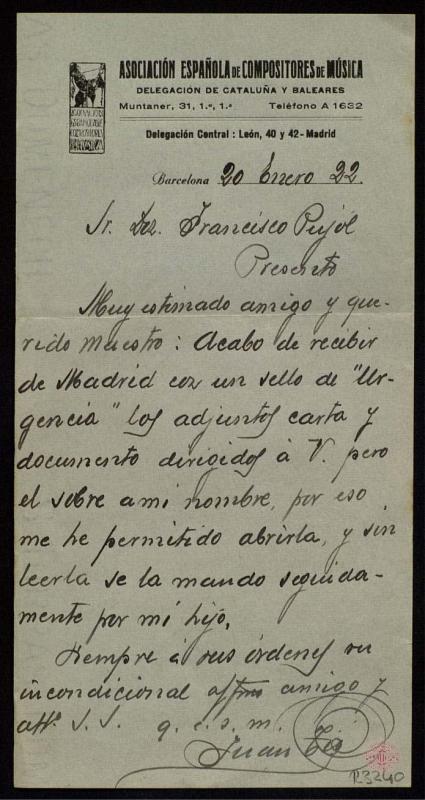 ASOCIACIÓN ESPAÑOLA DE COMPOSITORES DE MÚSICA
DELEGACIÓN DE CATALUÑA Y BALEARES
Muntaner, 31, 1.º, 1.ª Teléfono A 1632
Delegación Central: León, 40 y 42-Madrid
Barcelona 20 Enero 22.
Sr. Don Francisco Pujol
Presente
Muy estimado amigo y que-
rido Maestro: Acabo de recibir
de Madrid con un sello de "Ur-
gencia" los adjuntos carta y
documento dirigidos à V. pero
el sobre a mi nombre, por eso
me he permitido abrirla, y sin
leerla se la mando seguida-
mente por mi hijo.
Siempre à sus órdenes su
incondicional affmo amigo y
att.º S. S. q. e. s. m.
Juan
R3240